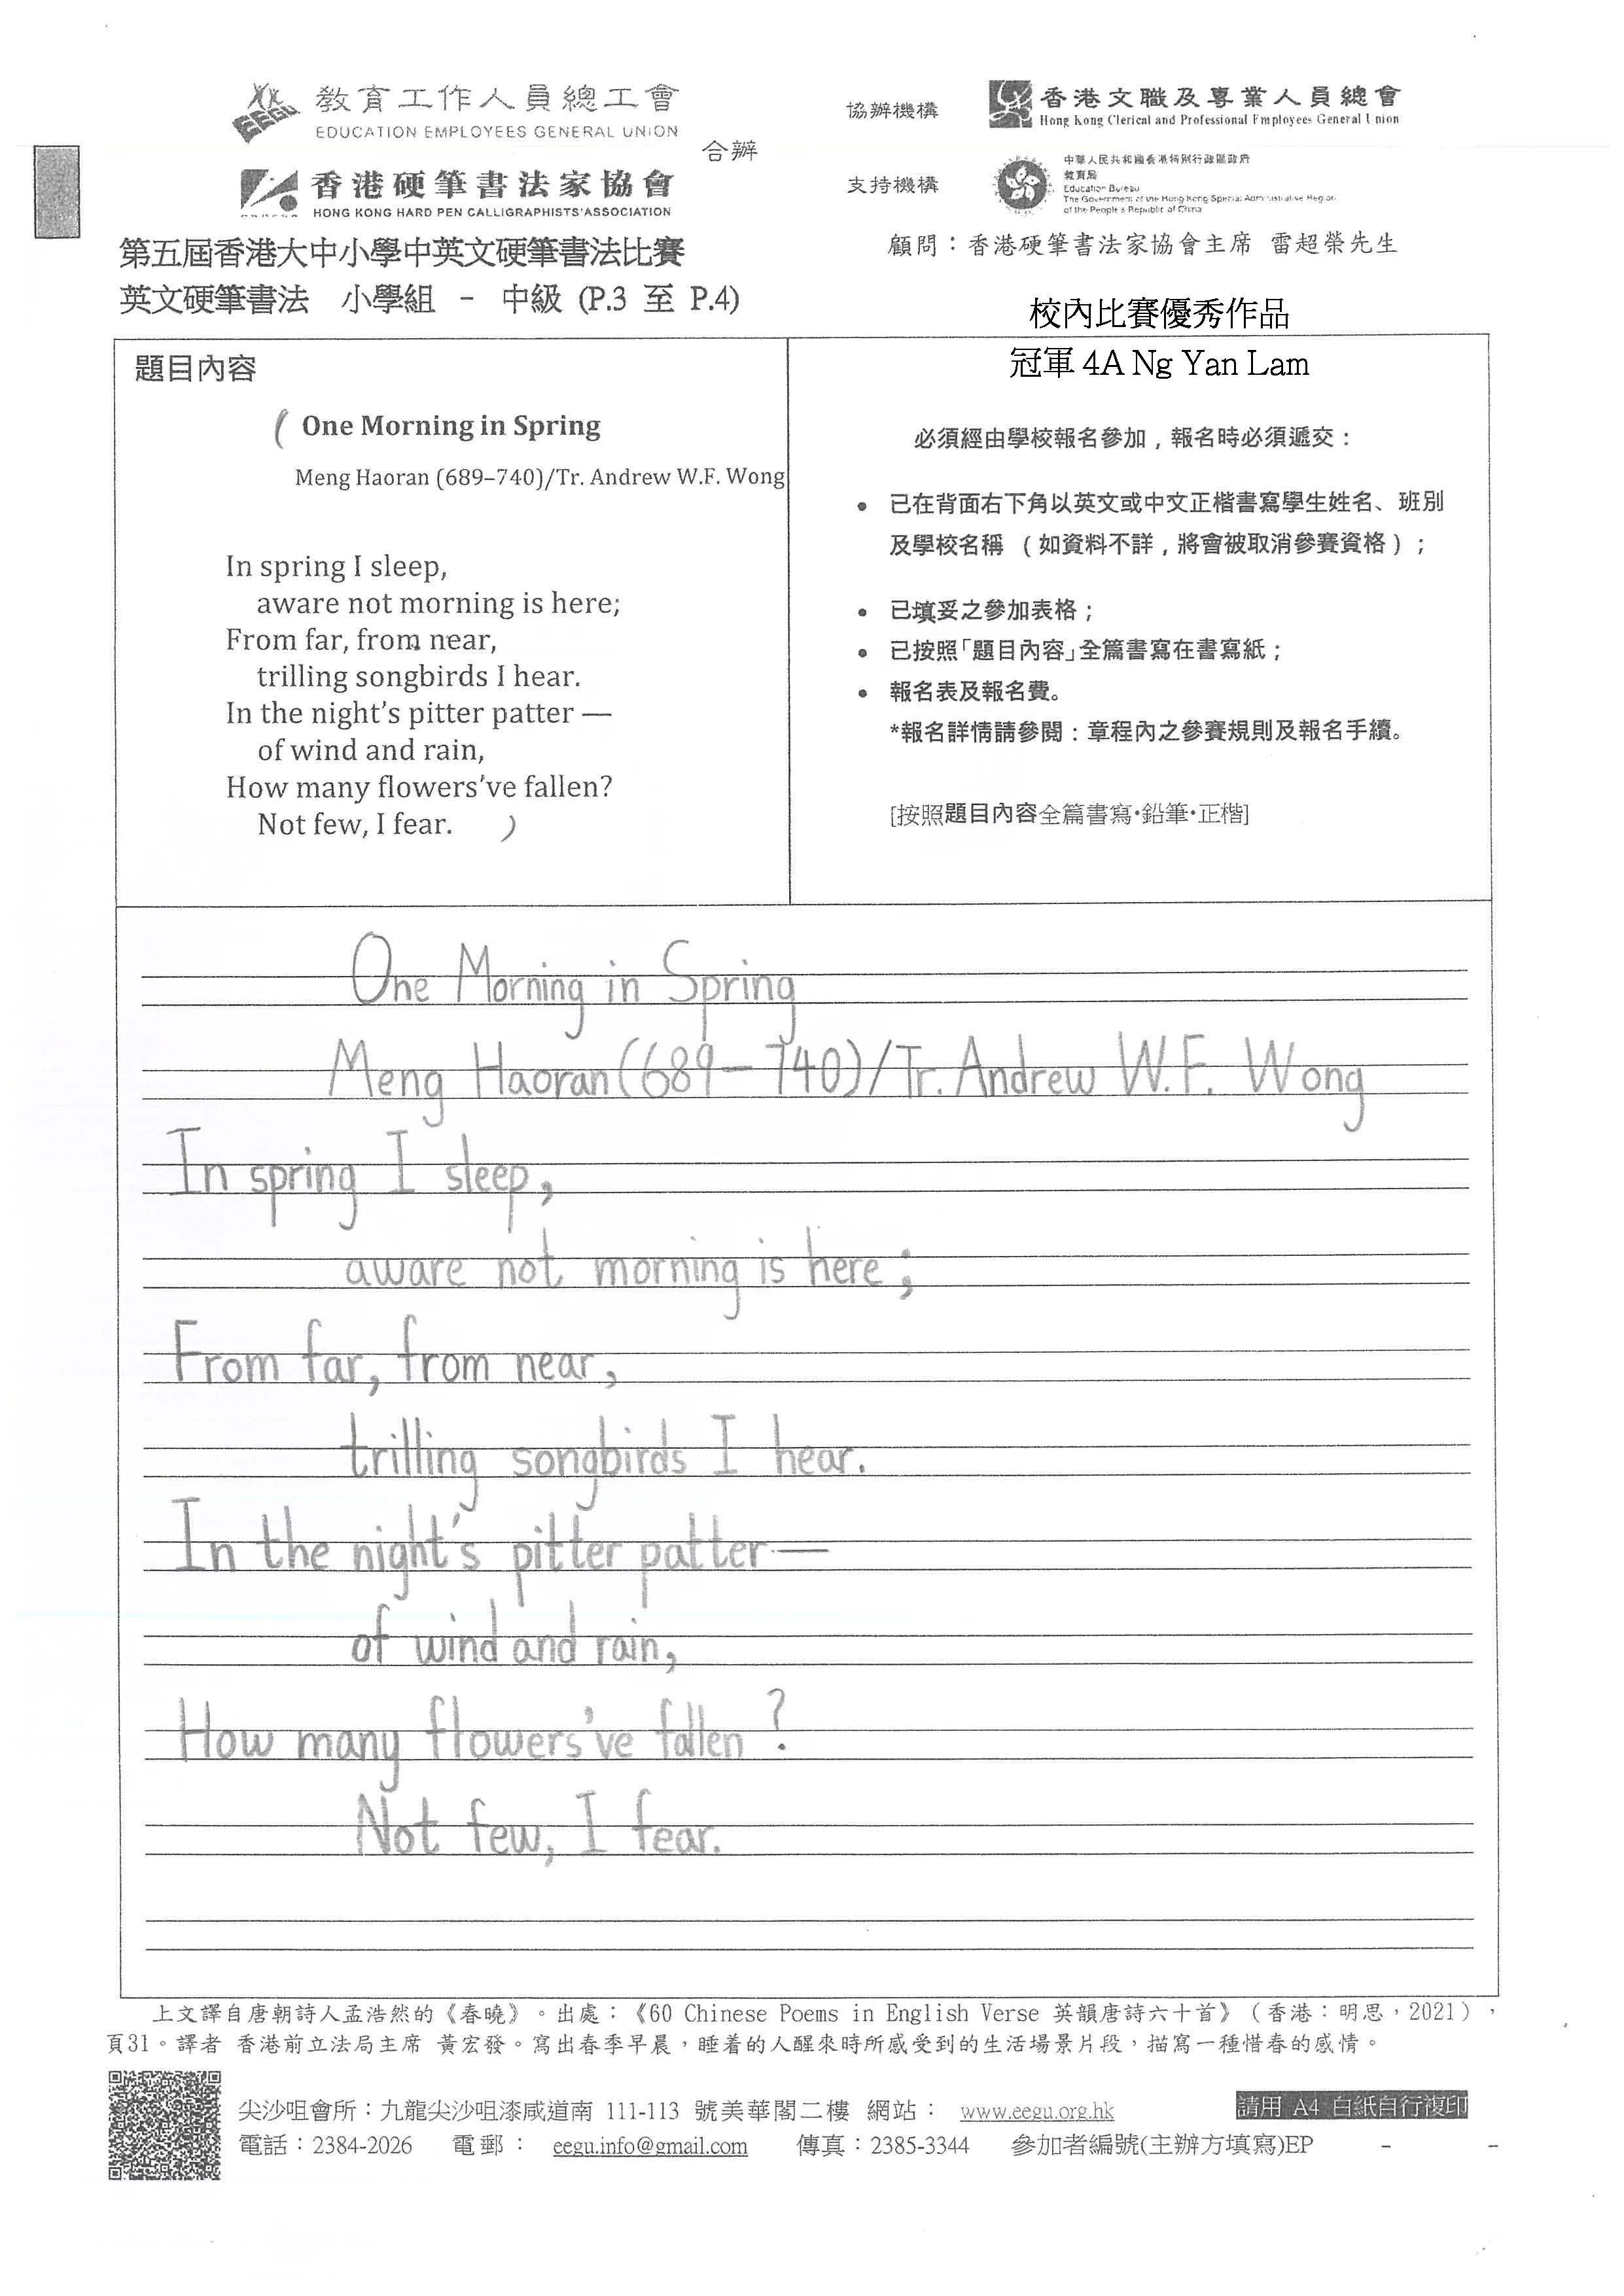 教育工作人員總工會
EDUCATION EMPLOYEES GENERAL UNION
合辦
香港硬筆書法家協會
HONG KONG HARD PEN CALLIGRAPHISTS'ASSOCIATION
協辦機構
香港文職及專業人員總會
Hong Kong Clerical and Professional Employees General Union
支持機構
中華人民共和國香港特別行政區政府
教育局
Education Bureau
The Government of the Hong Kong Special Administrative Region
of the People's Republic of China
第五屆香港大中小學中英文硬筆書法比賽
顧問：香港硬筆書法家協會主席 雷超榮先生
英文硬筆書法 小學組 - 中級 (P.3 至 P.4)
校內比賽優秀作品
冠軍 4A Ng Yan Lam
題目內容
( One Morning in Spring
Meng Haoran (689–740)/Tr. Andrew W.F. Wong
In spring I sleep,
aware not morning is here;
From far, from near,
trilling songbirds I hear.
In the night's pitter patter —
of wind and rain,
How many flowers've fallen?
Not few, I fear. )
必須經由學校報名參加，報名時必須遞交：
• 已在背面右下角以英文或中文正楷書寫學生姓名、班別
及學校名稱 （如資料不詳，將會被取消參賽資格）；
• 已填妥之參加表格；
• 已按照「題目內容」全篇書寫在書寫紙；
• 報名表及報名費。
*報名詳情請參閱：章程內之參賽規則及報名手續。
[按照題目內容全篇書寫·鉛筆·正楷]
One Morning in Spring
Meng Haoran (689–740)/Tr. Andrew W.F. Wong
In spring I sleep,
aware not morning is here;
From far, from near,
trilling songbirds I hear.
In the night's pitter patter—
of wind and rain,
How many flowers've fallen?
Not few, I fear.
上文譯自唐朝詩人孟浩然的《春曉》。出處：《60 Chinese Poems in English Verse 英韻唐詩六十首》（香港：明思，2021），
頁31。譯者 香港前立法局主席 黃宏發。寫出春季早晨，睡着的人醒來時所感受到的生活場景片段，描寫一種惜春的感情。
尖沙咀會所：九龍尖沙咀漆咸道南 111-113 號美華閣二樓 網站： www.eegu.org.hk
請用 A4 白紙自行複印
電話：2384-2026 電郵： eegu.info@gmail.com 傳真：2385-3344 參加者編號(主辦方填寫)EP - -